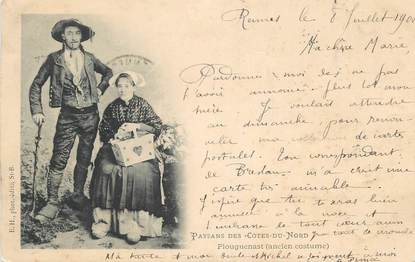 Rennes le 8 Juillet 1900
Ma chère Marie,
Pardonnes-moi de ne pas
t'avoir plus tôt
Je voulais attendre
au dimanche pour renou-
veler ma de cartes
postales. Ton correspondant
de m'a écrit une
carte très aimable.
J'espère que tu te seras bien
amusée à la noce et
t'embrasse de tout cœur ainsi
que tout le monde
Ma tante et mon oncle se joignent à moi
E. H., phot.-édit. St-B.
PAYSANS DES CÔTES-DU-NORD
Plouguenast (ancien costume)